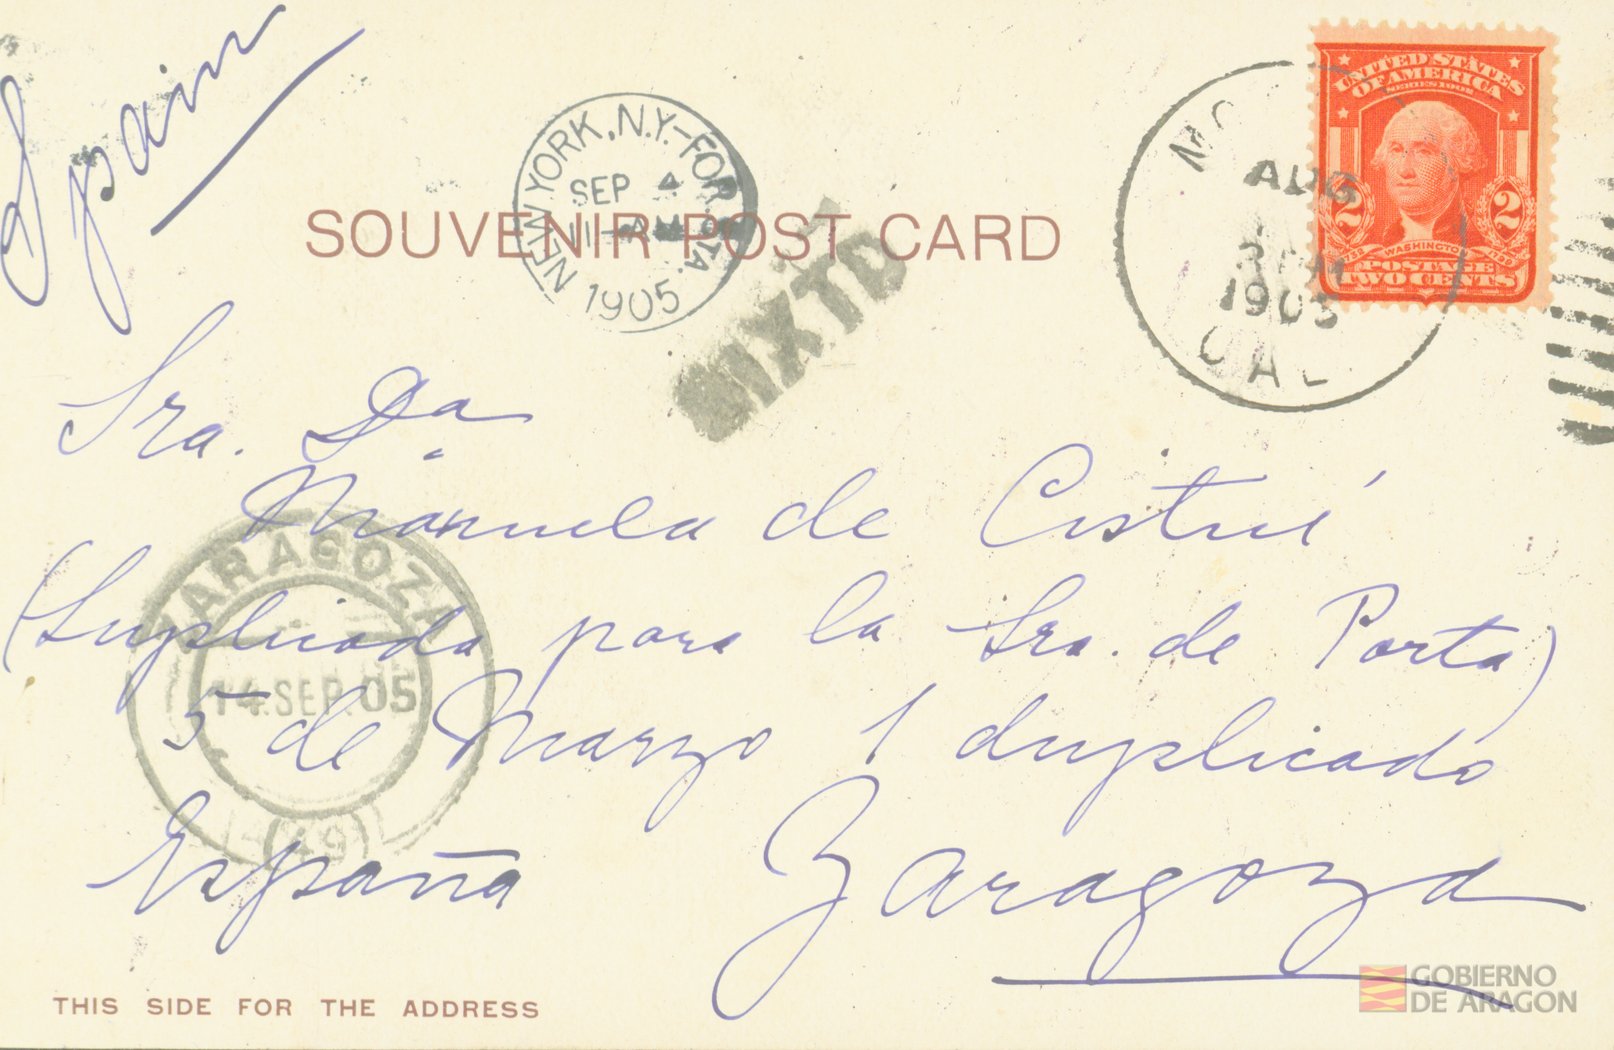 Spain
UNITED STATES
OF AMERICA
SERIES 1902
2 2
WASHINGTON
POSTAGE
TWO CENTS
NEW YORK, N.Y.-FOR.
SEP 4
11-AM
1905
AUG
1905
CAL.
MIXTO
SOUVENIR POST CARD
Sra. Da
Manuela de Cistué
(Suplicada para la Sra. de Porta)
5 de Marzo 1 duplicado
España Zaragoza
ZARAGOZA
14.SEP.05
(49)
THIS SIDE FOR THE ADDRESS
GOBIERNO
DE ARAGON